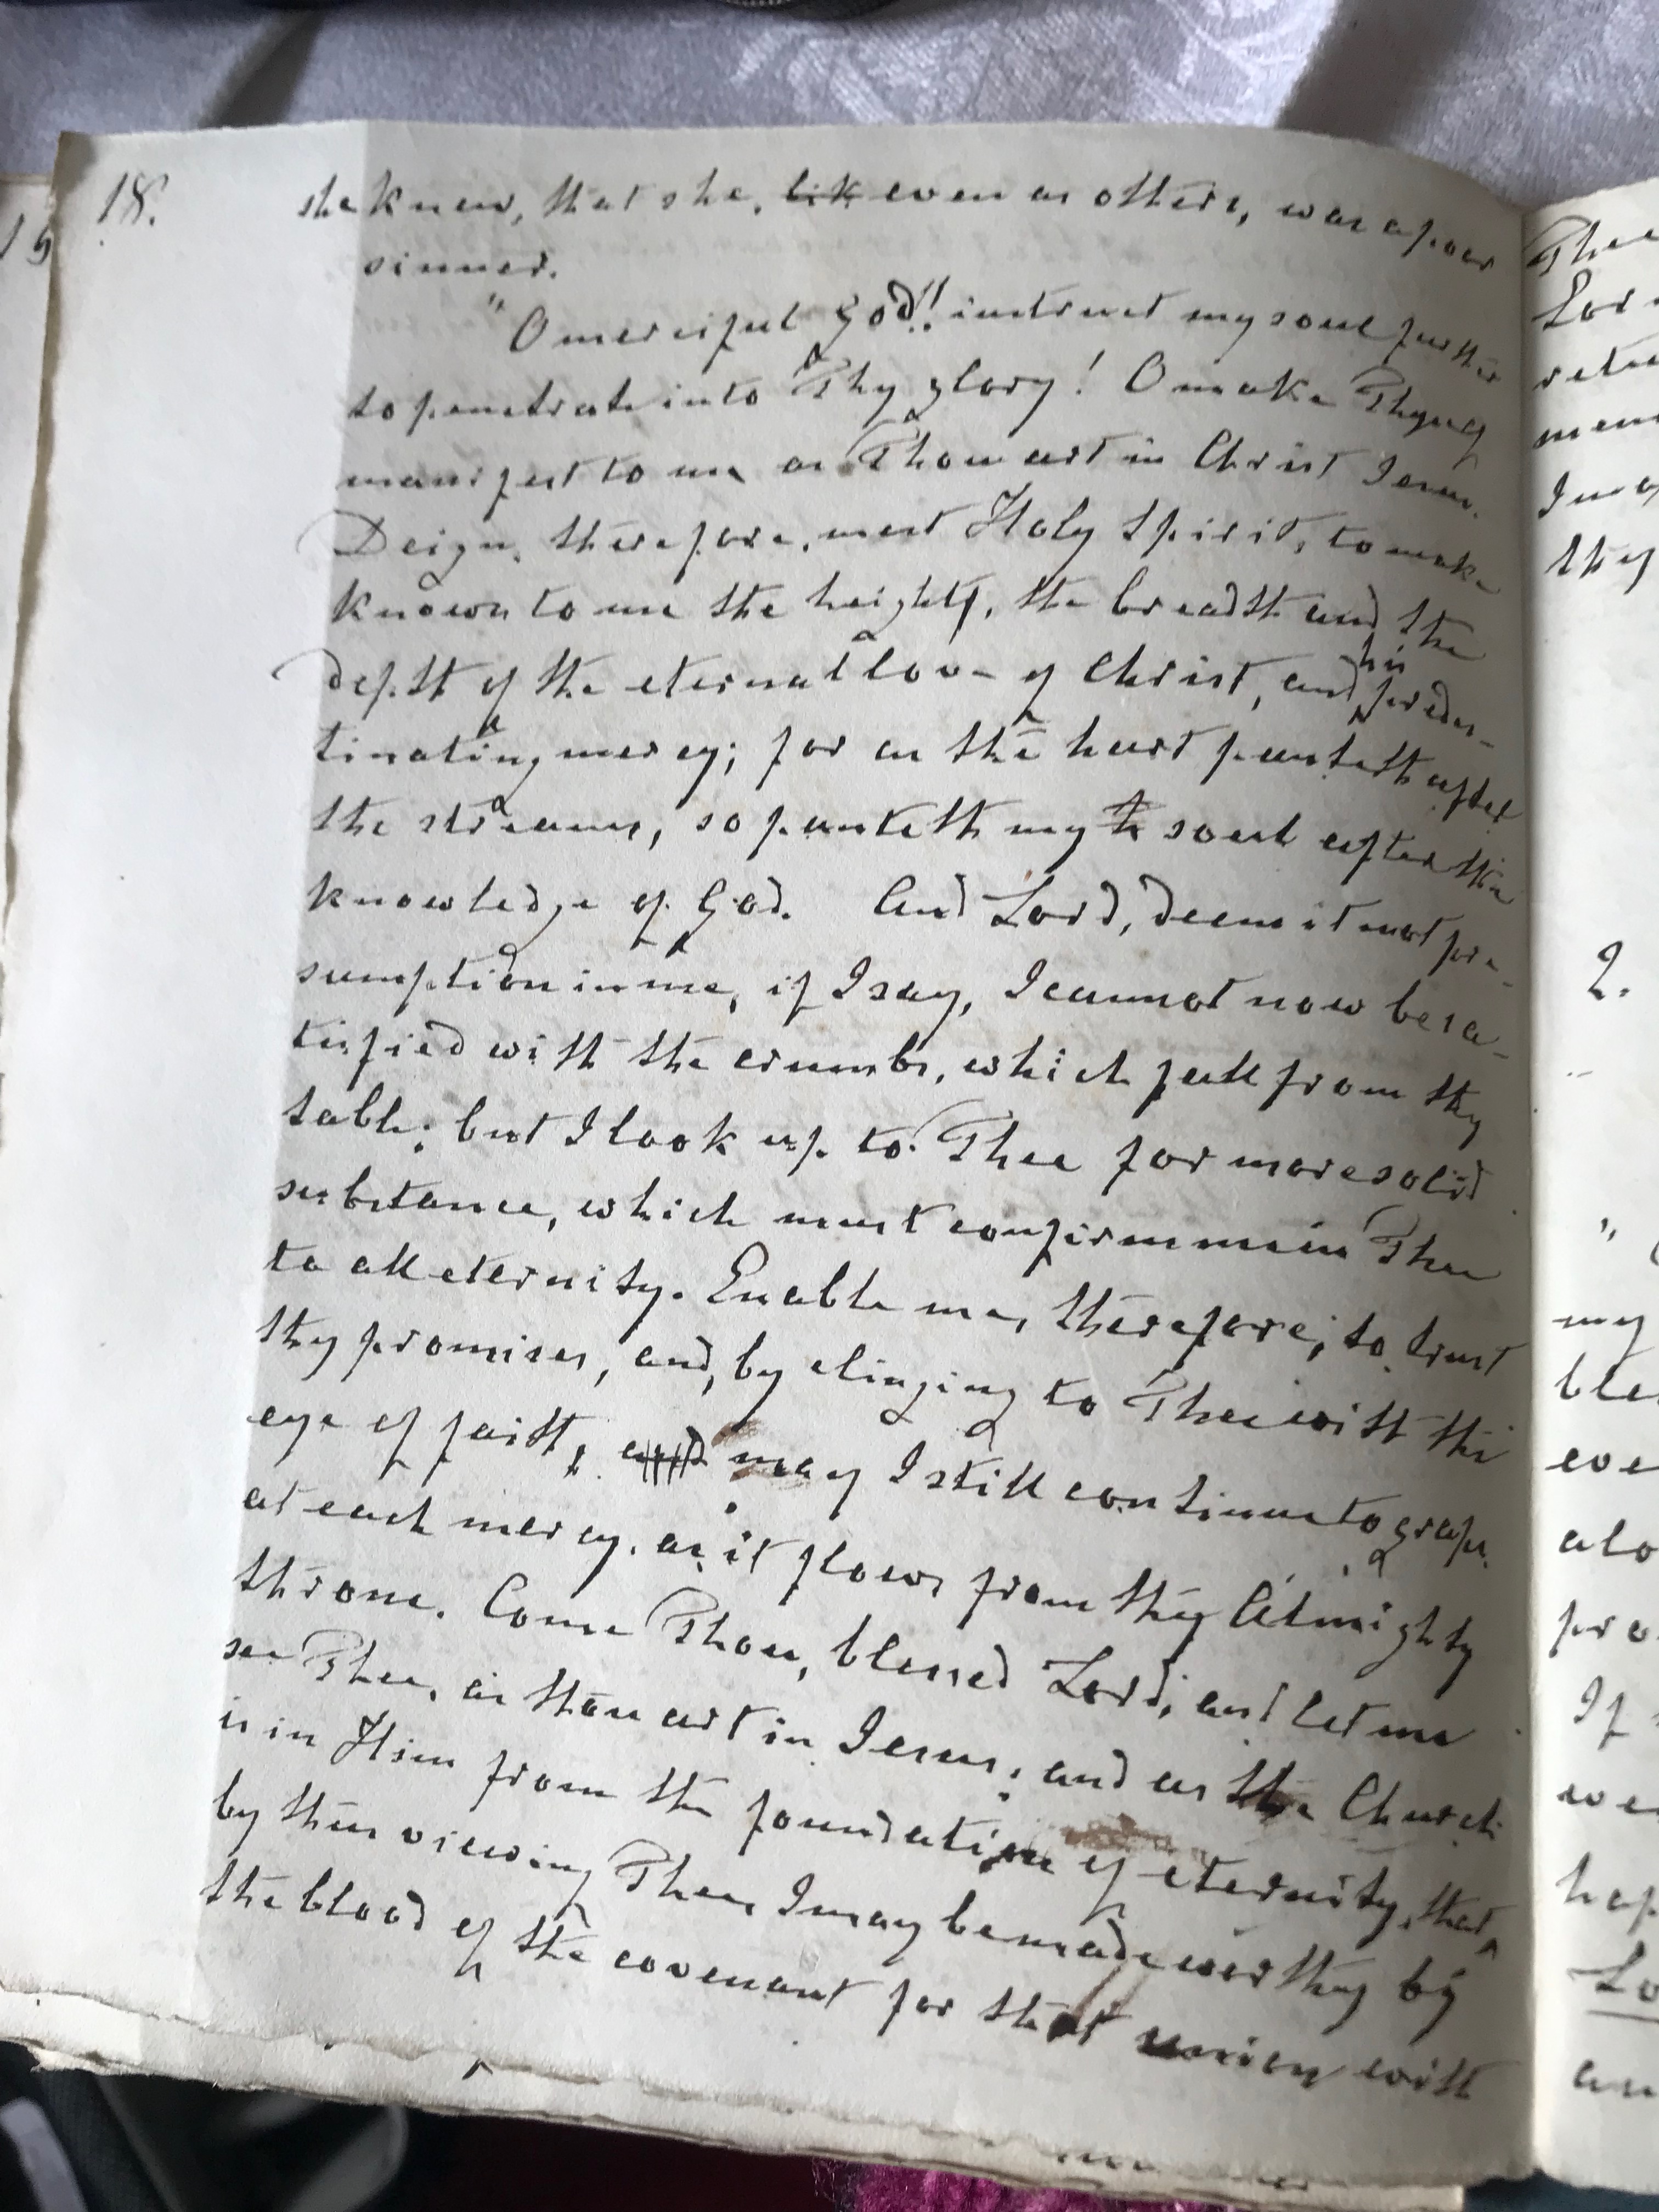 18.
she knew, that she, lik even as others, was a poor
sinner.
"O merciful God!! instruct my soul further
to penetrate into Thy glory! O make Thyself
manifest to me as Thou art in Christ Jesus.
Deign, therefore, most Holy Spirit, to make
known to me the height, the breadth and the
depth of the eternal love of Christ, and his predes-
tinating mercy; for as the hart panteth after
the streams, so panteth my th soul after the
knowledge of God. And Lord, deem it not pre-
sumption in me, if I say, I cannot now be sa-
tisfied with the crumbs, which fall from thy
table; but I look up to Thee for more solid
substance, which must confirm me in Thee
to all eternity. Enable me, therefore, to trust
thy promises, and, by clinging to Thee with the
eye of faith, and may I still continue to grasp
at each mercy, as it flows from thy Almighty
throne. Come Thou, blessed Lord, and let me
see Thee, as thou art in Jesus, and as the Church
is in Him from the foundation of eternity, that
by thus viewing Thee, I may be made worthy by
the blood of the covenant for that union with
Thee
Lor
retu
mem
they
2.
my
ble
eve
alo
pro
If
we
hap
Lo
an